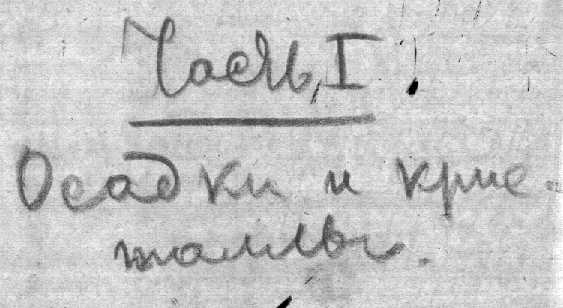 Часть I.
Осадки и крис-
таллы.